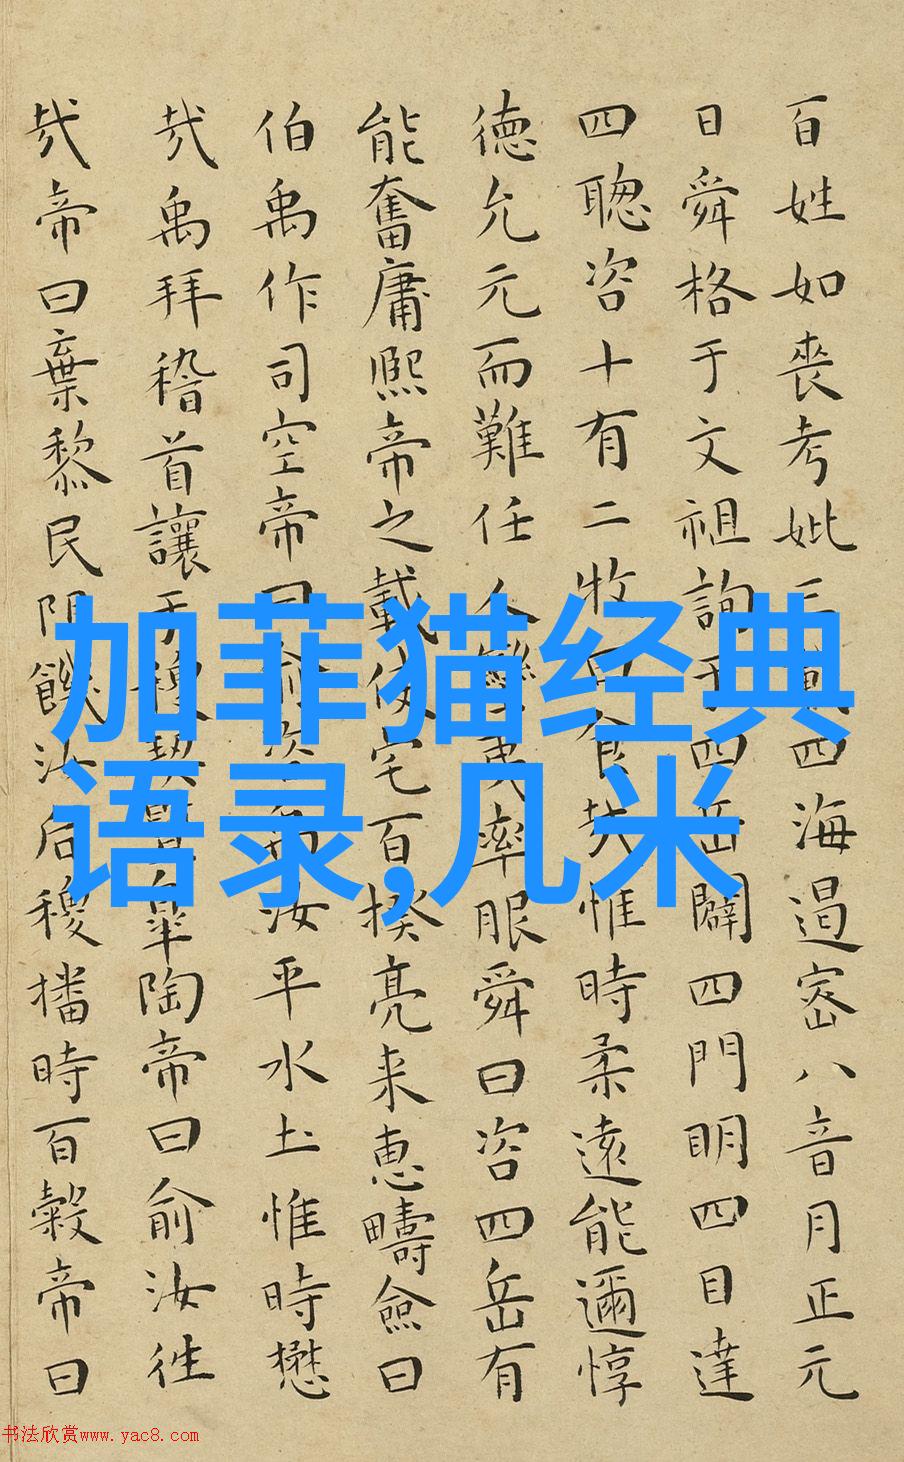 百姓如喪考妣三載四海遏密八音月正元
日舜格于文祖詢于四岳闢四門明四目達
四聦咨十有二牧曰食哉惟時柔遠能邇惇
德允元而難任人蠻夷率服舜曰咨四岳有
能奮庸熙帝之載使宅百揆亮来惠疇僉曰
伯禹作司空帝曰俞咨禹汝平水土惟時懋
哉禹拜稽首讓于稷契暨皐陶帝曰俞汝往
哉帝曰棄黎民阻饑汝后稷播時百穀帝曰
加菲猫经典
语录,几米
书法欣赏www.yac8.com